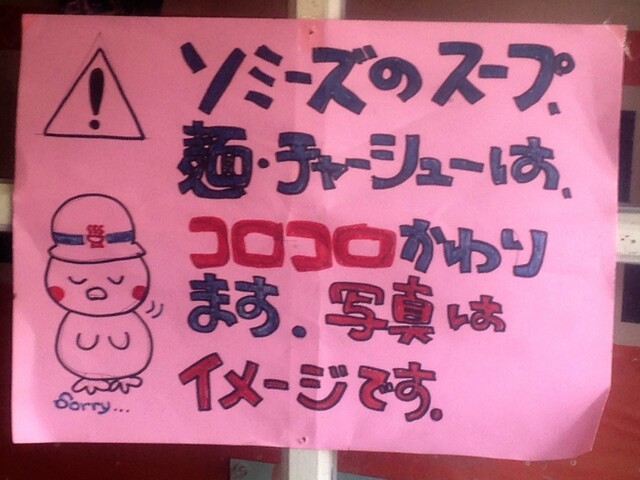 ソミーズのスープ、
麺・チャーシューは、
コロコロかわり
ます。写真は
イメージです。
Sorry...